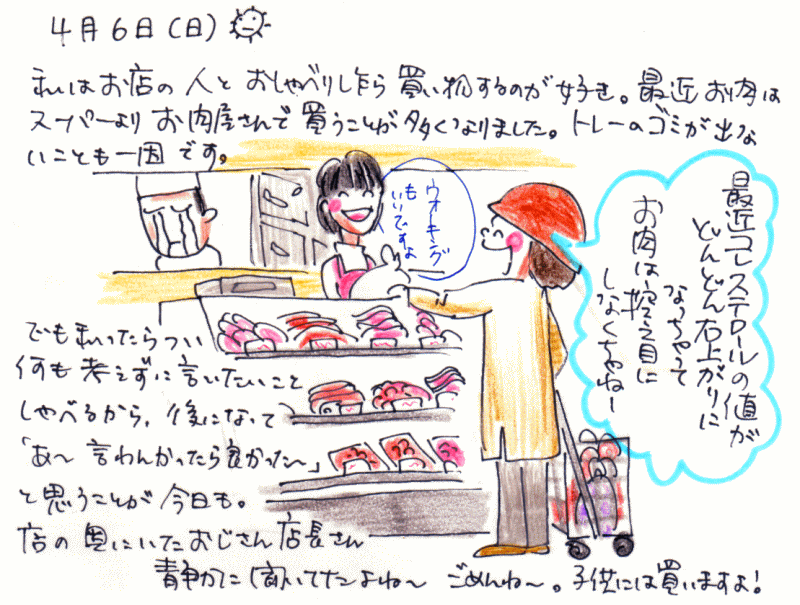 4月6日(日)
私はお店の人とおしゃべりし乍ら買い物するのが好き。最近お肉は
スーパーよりお肉屋さんで買うことが多くなりました。トレーのゴミが出な
いことも一因です。
ウオーキング
も
いいですよ
最近コレステロールの値が
どんどん右上がりに
なっちゃって
お肉は控え目に
しなくちゃねー
でも私ったらつい
何も考えずに言いたいこと
しゃべるから、後になって
「あ〜言わんかったら良かった〜」
と思うことが今日も。
店の奥にいたおじさん店長さん
静かに聞いてたよね〜 ごめんね〜。子供には買いますよ!